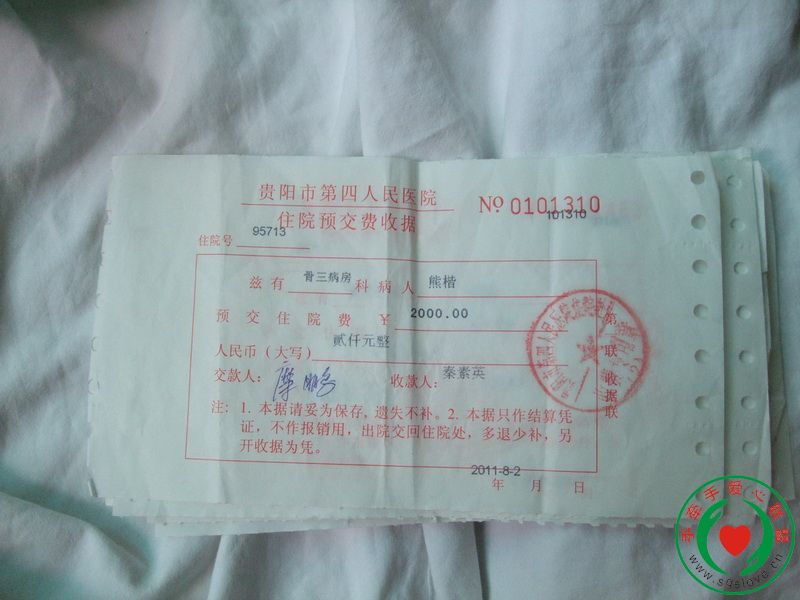 贵阳市第四人民医院
№ 0101310
101310
住院预交费收据
住院号 95713
兹有 骨三病房 科病人 熊楷
预交住院费 ¥ 2000.00
人民币（大写） 贰仟元整
交款人： 收款人： 秦素英
注：1. 本据请妥为保存，遗失不补。2. 本据只作结算凭
证，不作报销用，出院交回住院处，多退少补，另
开收据为凭。
2011-8-2
年 月 日
第 联 收据联
手牵手爱心联盟
www.sqslove.cn